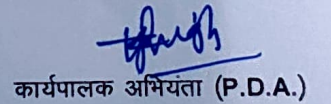 कार्यपालक अभियंता (P.D.A.)